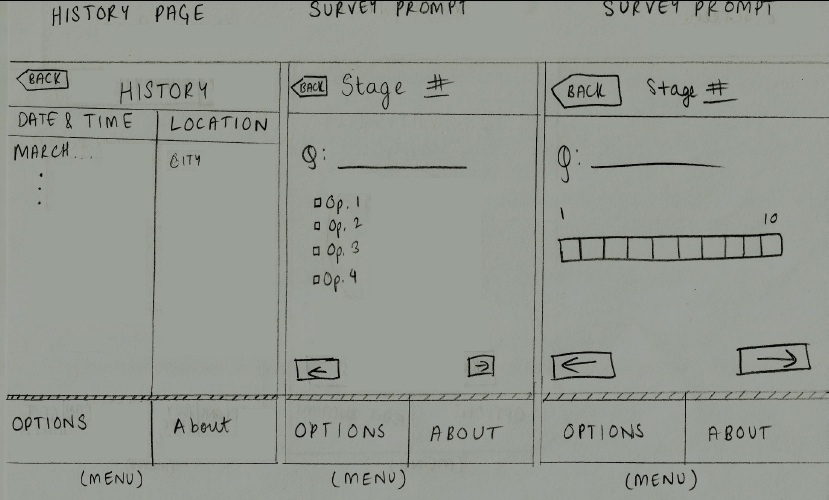 HISTORY PAGE
BACK
HISTORY
DATE & TIME
LOCATION
MARCH...
CITY
OPTIONS
About
(MENU)
SURVEY PROMPT
BACK
Stage #
Q:
Op. 1
Op. 2
Op. 3
Op. 4
OPTIONS
ABOUT
(MENU)
SURVEY PROMPT
BACK
Stage #
Q:
1
10
OPTIONS
ABOUT
(MENU)